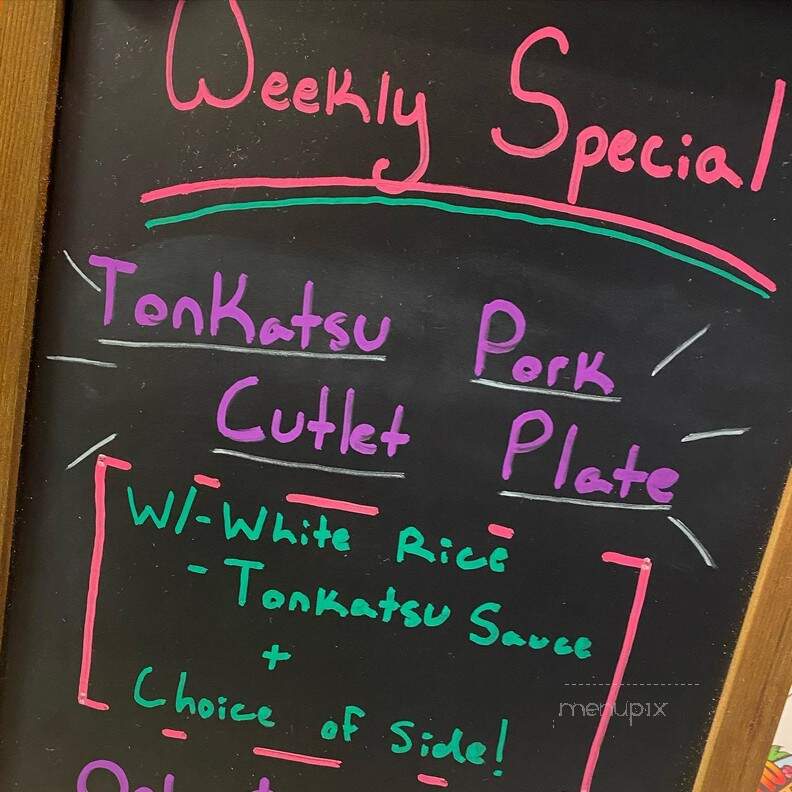 Weekly Special
Tonkatsu Pork
Cutlet Plate
W/-White Rice
-Tonkatsu Sauce
+
Choice of Side!
menupix